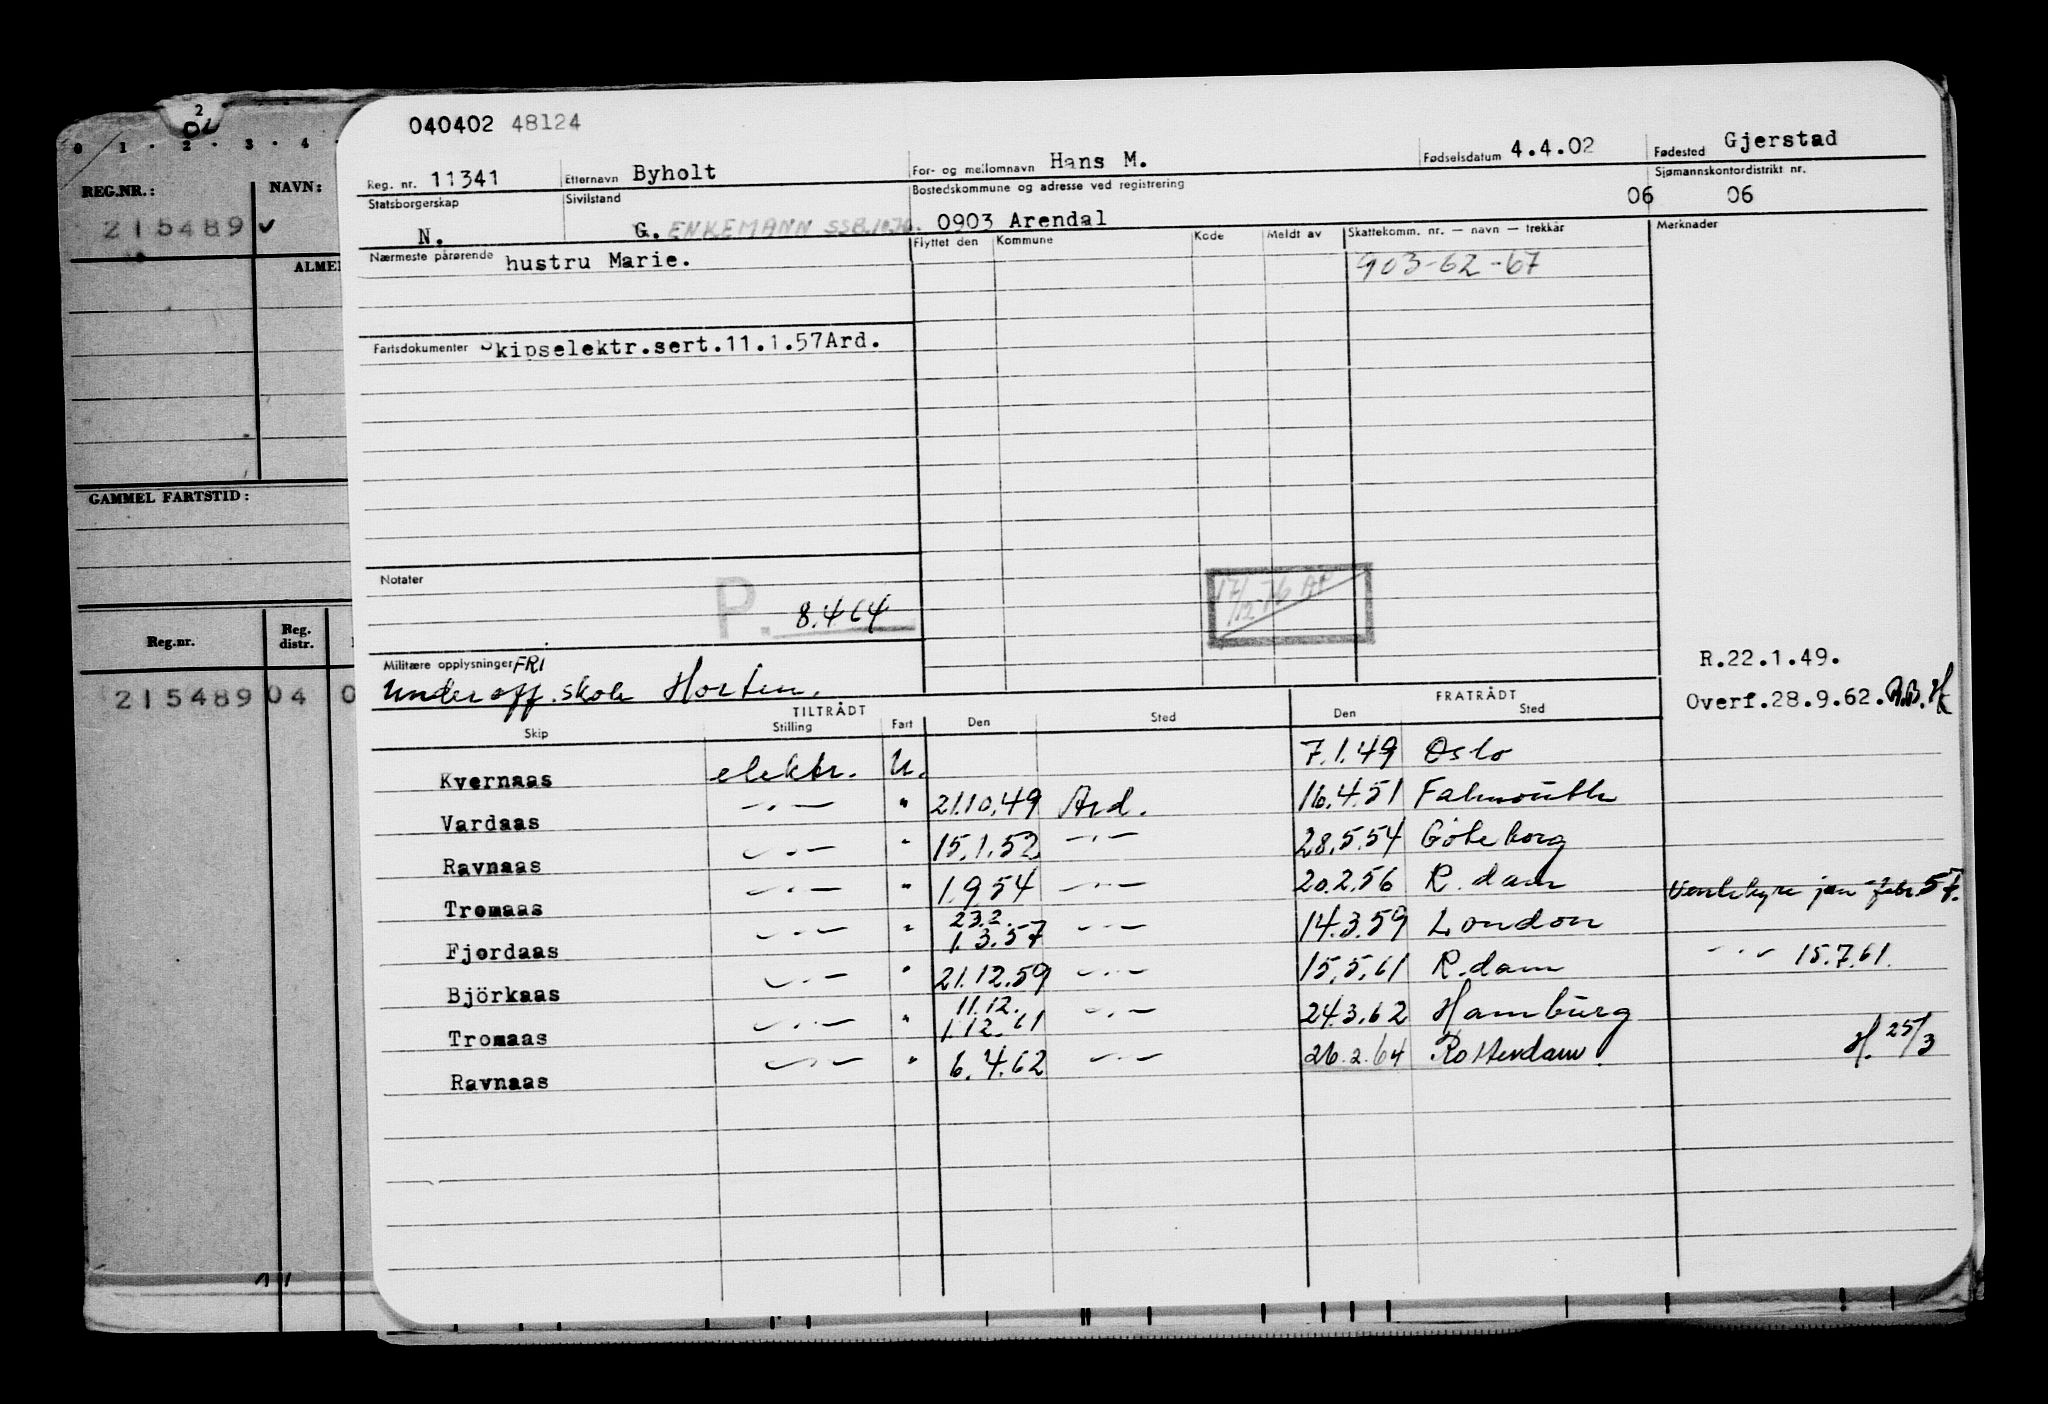 2
0 · 1 · 2 · 3 · 4
REG.NR.: NAVN:
215489 ✓
ALME
GAMMEL FARTSTID:
Reg.nr. Reg. distr.
215489 04 0
040402 48124
Reg. nr. 11341 Etternavn Byholt For- og mellomnavn Hans M. Fødselsdatum 4.4.02 Fødested Gjerstad
Statsborgerskap Sivilstand Bostedskommune og adresse ved registrering Sjømannskontordistrikt nr.
N. G. ENKEMANN SSB.1070. 0903 Arendal 06 06
Nærmeste pårørende hustru Marie. Flyttet den Kommune Kode Meldt av Skattekomm. nr. — navn — trekkår Merknader
903-62-67
Fartsdokumenter Skipselektr.sert.11.1.57Ard.
Notater
P. 8.4 64
17/12-76 AP
Militære opplysninger FRI
Underoff.skole Horten.
R.22.1.49.
Overf.28.9.62.
TILTRÅDT FRATRÅDT
Skip Stilling Fart Den Sted Den Sted
Kvernaas elektr. U. 7.1.49 Oslo
Vardaas —"— " 21.10.49 Ard. 16.4.51 Falmouth
Ravnaas —"— " 15.1.52 —"— 28.5.54 Göteborg
Tromaas —"— " 1.9 54 —"— 20.2.56 R.dam
Fjordaas —"— " 23.2. 1.3.57 —"— 14.3.59 London Ventehyre jan-febr 57.
Björkaas —"— " 21.12.59 —"— 15.5.61 R.dam —"— 15.7.61.
Tromaas —"— " 11.12. 1.12.61 —"— 24.3.62 Hamburg
Ravnaas —"— " 6.4.62 —"— 26.2.64 Rotterdam. H. 25/3